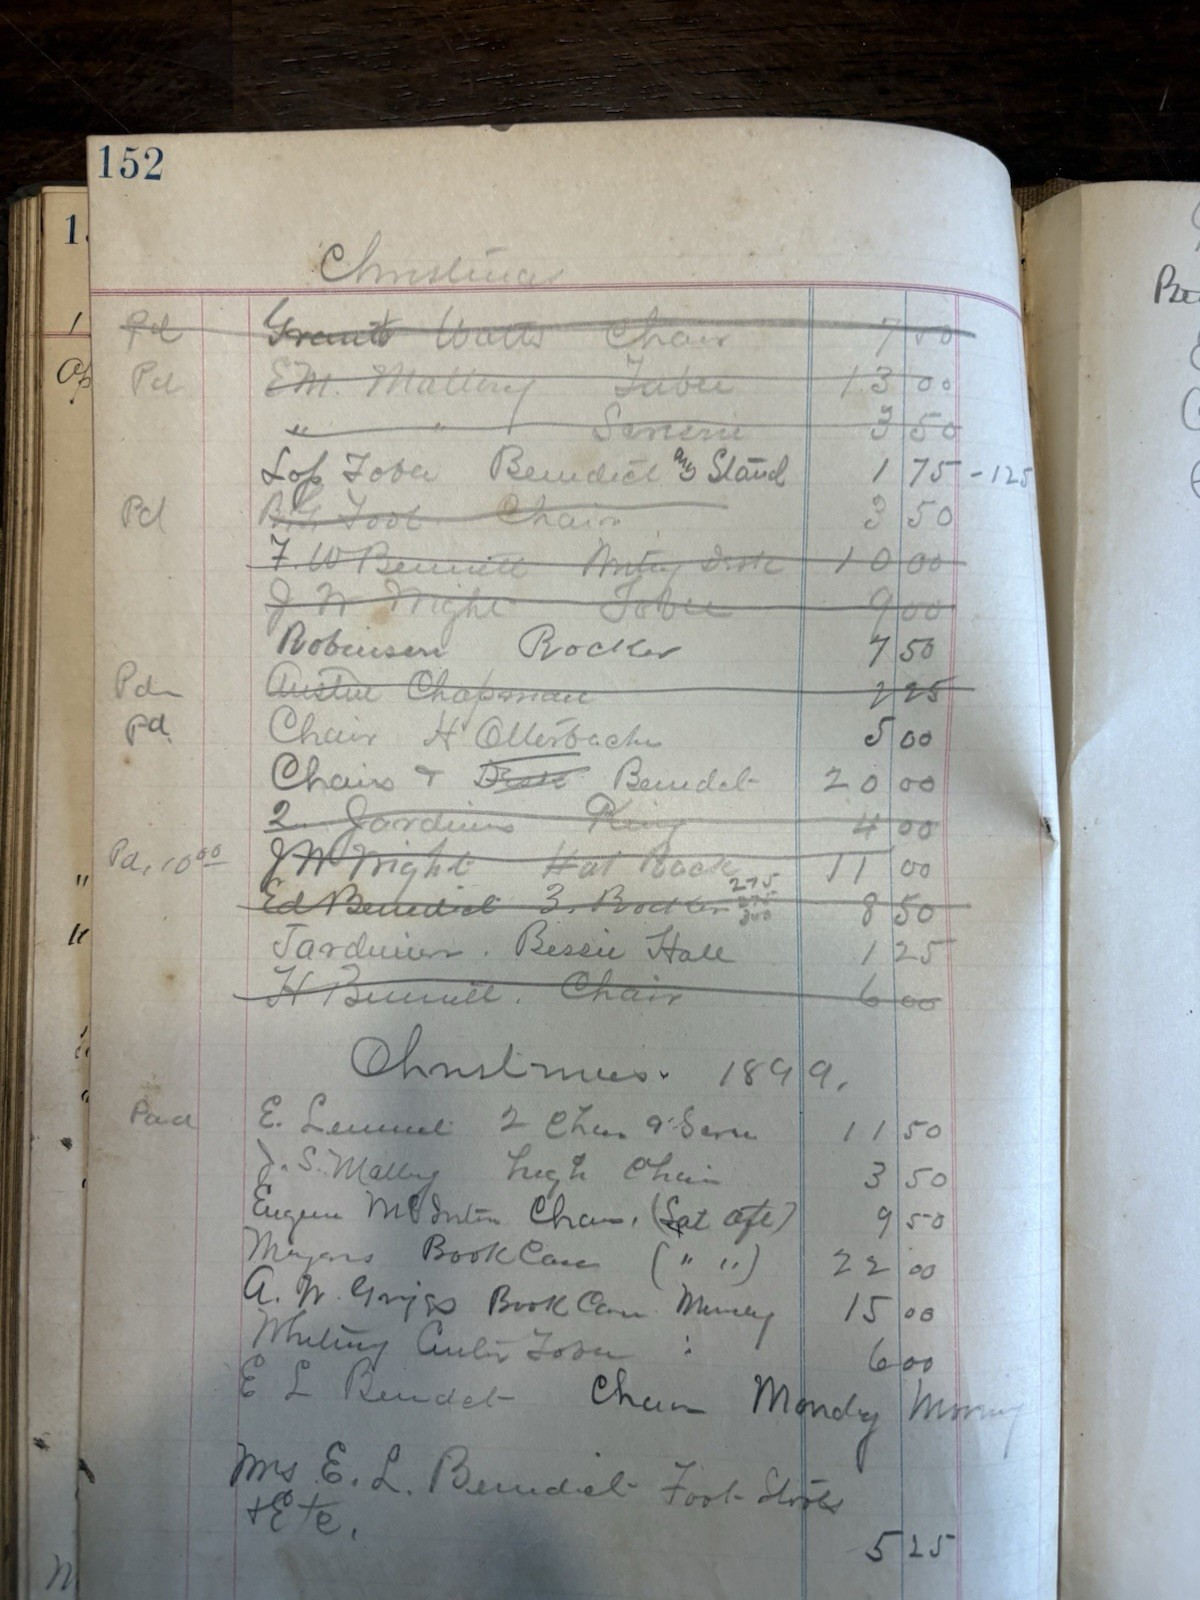 152
Christmas
Pd Grant Watts Chair 7 00
Pd E.M. Mallory Table 13 00
" " Screen 3 50
Top Table Benedict any Stand 1 75 - 125
Pd Foot Chair 3 50
F. W Bennett Desk 10 00
J W Wright Table 9 00
Robinson Rocker 7 50
Pd Austin Chapman 2 25
Pd. Chair H Otterbach 5 00
Chairs + Desk Benedict 20 00
2 Jardiniers King 4 00
Pd. 10 00 J W Wright Hat Rack 11 00
Ed Benedict 3 Rockers 275 275 300 8 50
Jardinier. Bessie Hall 1 25
H Bennett. Chair 6 00
Christmas. 1899.
Paid E. 2 Chair & Screen 11 50
J. S. Mallory high Chair 3 50
Eugene Chair. (Sat aft) 9 50
Meyers Book Case (" ") 22 00
A. W. Griggs Book Case 15 00
Whiting Center Table 6 00
E L Benedict Chair Monday Morning
Mrs E. L. Benedict Foot Stools
+ Etc.
5 25